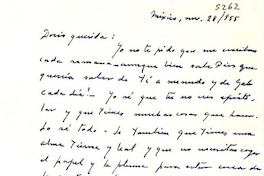 5262
México, nov. 28/955
Doris querida:
Yo no te pido que me escribas
cada semana — aunque bien sabe Dios que
querría saber de tí a menudo y de Gab
cada día! — Yo sé que tu no eres epísto-
lar y que tienes muchas cosas que hacer.
Lo sé todo. — Yo también que tienes una
alma tierna y leal y que no necesitas coger
el papel y la pluma para estar cerca de